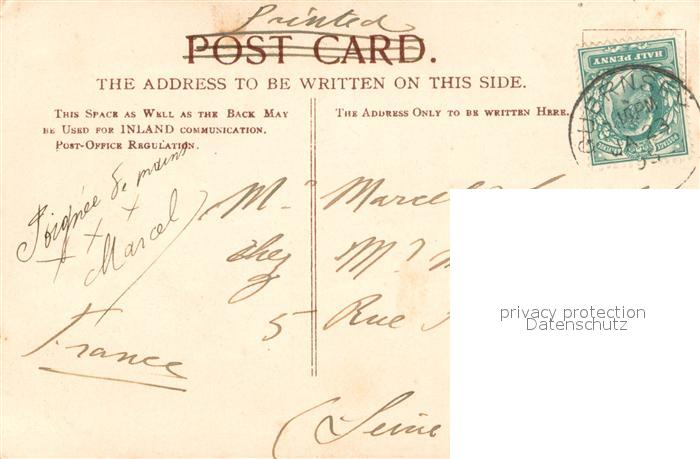 Printed
POST CARD.
THE ADDRESS TO BE WRITTEN ON THIS SIDE.
THIS SPACE AS WELL AS THE BACK MAY
BE USED FOR INLAND COMMUNICATION.
POST-OFFICE REGULATION.
THE ADDRESS ONLY TO BE WRITTEN HERE.
HALF PENNY
GUERNSEY
Poignée de mains
x x x
Marcel
Mr Marcel
chez Mr
5 Rue
France
(Seine
privacy protection
Datenschutz